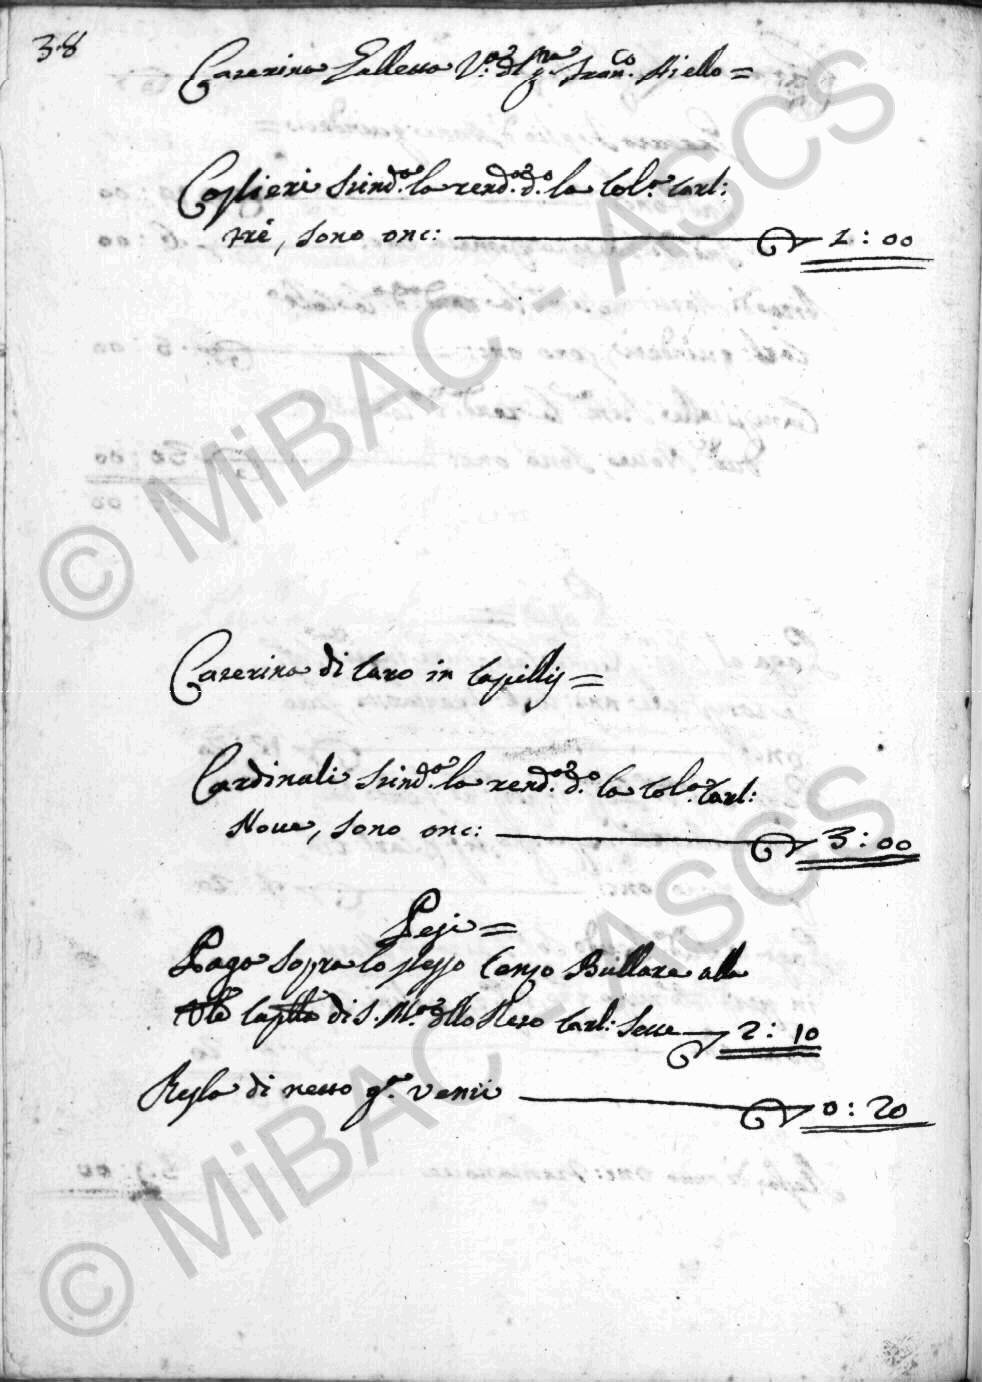 38
Caterina Galletta V.a dl q. Fran.co Aiello =
Coglieri stind.o la rend.a d.o la Col.a Carl:
tré, sono onc: 1 : 00
Caterina di Caro in Capillis =
Cardinali stind.o la rend.a d.o la Col.a Carl:
Noue, sono onc: 3 : 00
Pesi =
Paga sopra lo stesso Cenzo Bullare alla
Ve.le Cap.lla di S. M.a dllo Reto Carl: Sette 2 : 10
Resta di netto g.a venti 0 : 20
© MiBAC - ASCS
© MiBAC - ASCS